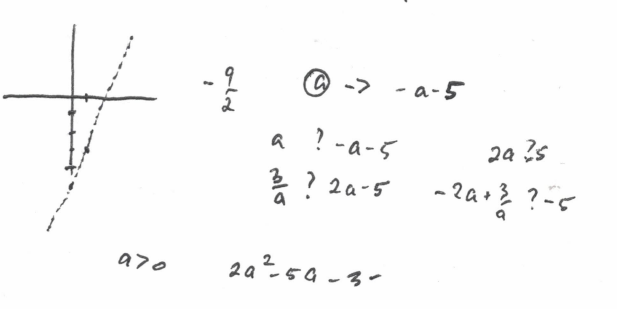 - 9/2 ⓐ -> -a-5
a ? -a-5 2a ? 5
3/a ? 2a-5 -2a+3/a ? -5
a>0 2a²-5a-3-